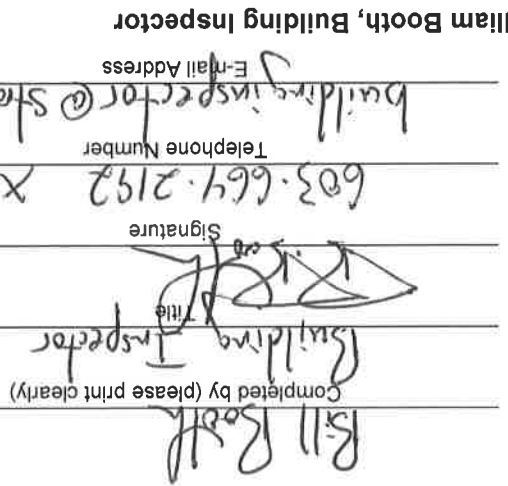 Bill Booth
Completed by (please print clearly)
Building Inspector
Title
Signature
603.664.2192 X
Telephone Number
buildinginspector@stra
E-mail Address
lliam Booth, Building Inspector